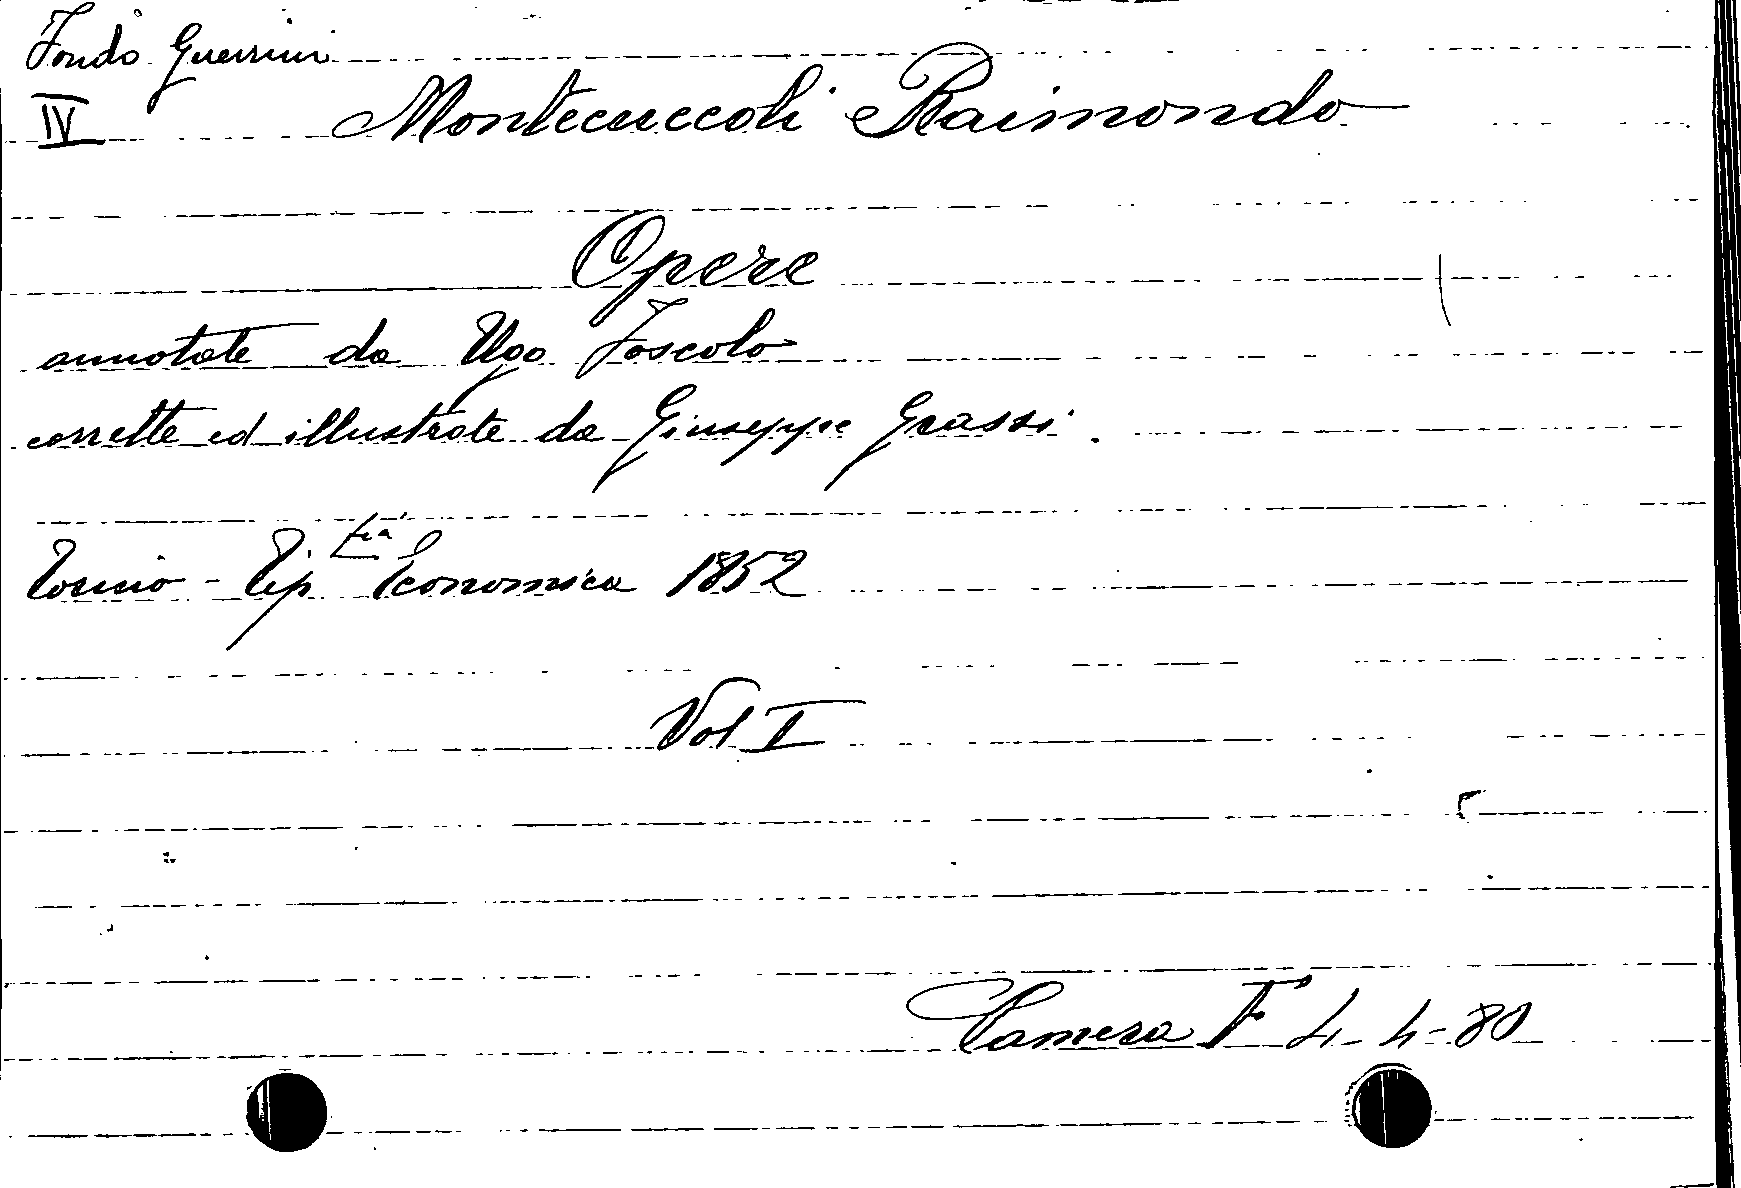 Fondo Guerrini
IV Montecuccoli Raimondo
Opere
annotate da Ugo Foscolo
corrette ed illustrate da Giuseppe Grassi.
Torino - Tip.fia Economica 1852
Vol I
Camera F 4-4-80